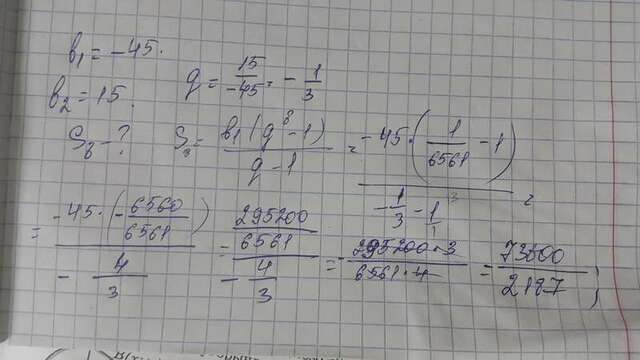 b₁ = -45.
b₂ = 15. q = 15/-45 = -1/3
S₈ - ? S₈ = b₁(q⁸-1)/q-1 = -45·(1/6561 - 1)/-1/3 - 1/1 =
= -45·(-6560/6561)/-4/3 = 295200/6561/-4/3 = -295200·3/6561·4 = -73800/2187;